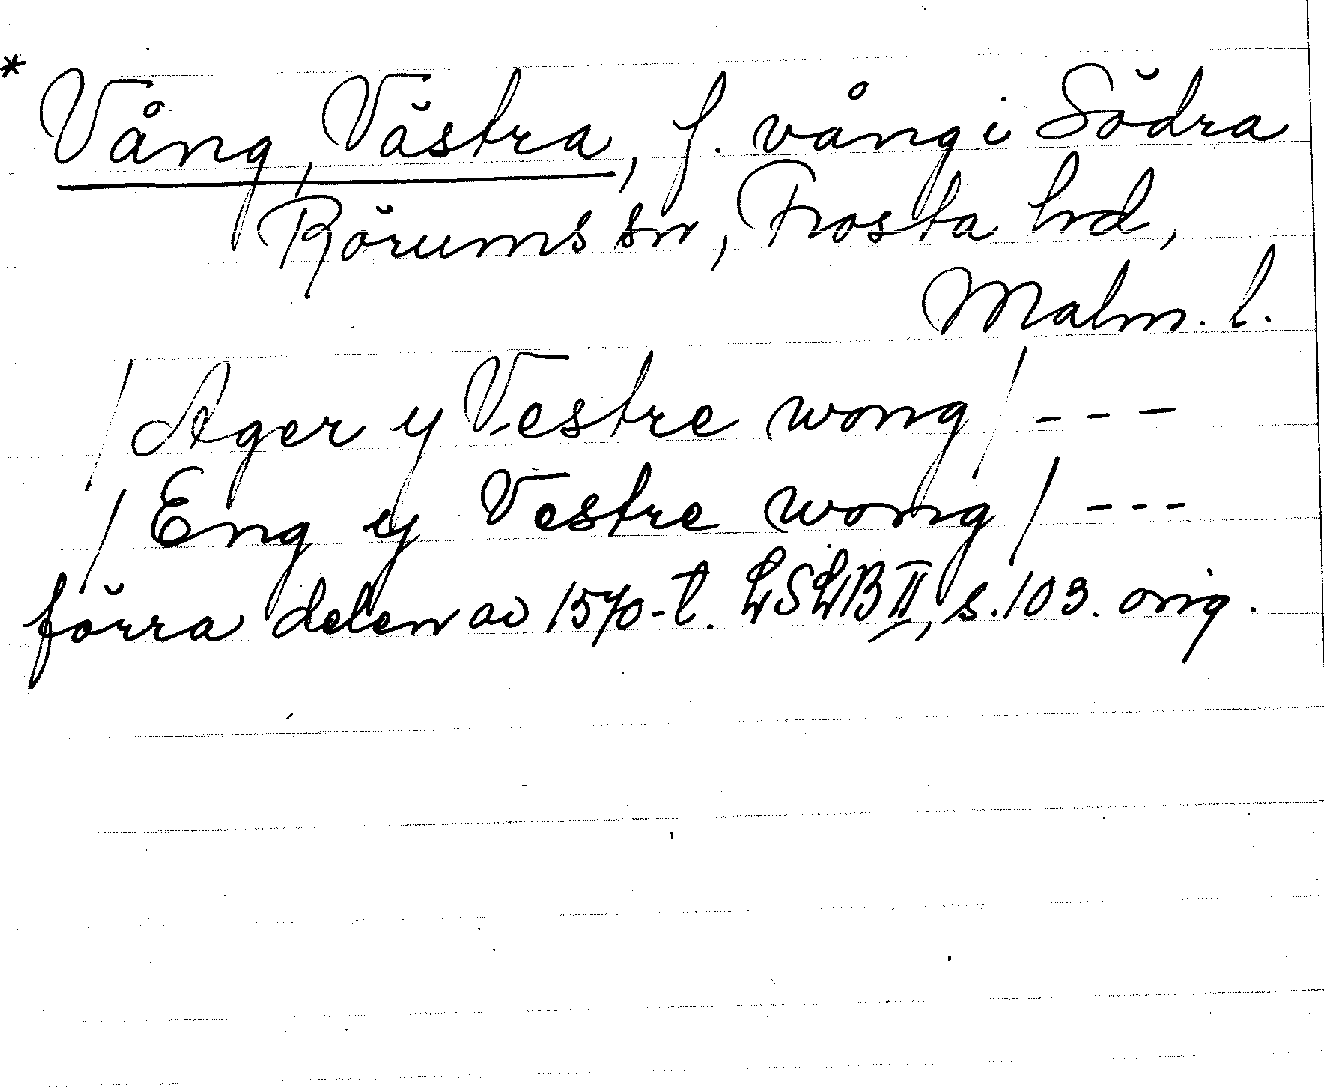 * Vång, Västra, f. vång i Södra
Rörums sn, Frosta hd,
Malm. l.
/Ager y Vestre wong/ ---
/Eng y Vestre wong/ ---
förra delen av 1570-t. LSLB II, s. 103. orig.